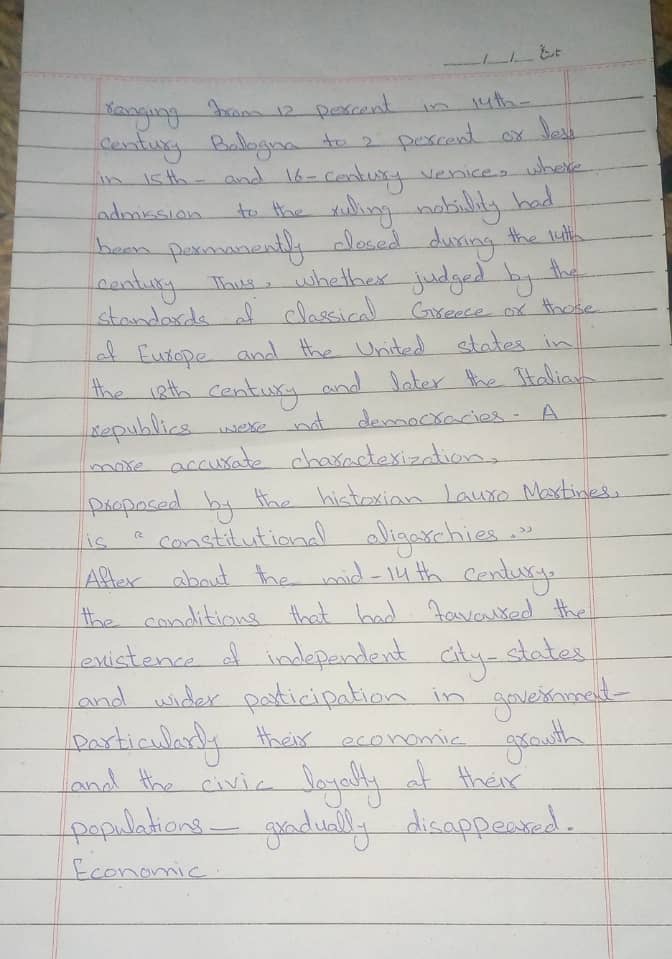 __/__/__
ranging from 12 percent in 14th-
century Bologna to 2 percent or less
in 15th- and 16-century venice, where
admission to the ruling nobility had
been permanently closed during the 14th
century Thus, whether judged by the
standards of classical Greece or those
of Europe and the United states in
the 18th century and later the Italian
republics were not democracies. A
more accurate characterization,
proposed by the historian Lauro Martines,
is "constitutional oligarchies."
After about the mid-14th century,
the conditions that had favoured the
existence of independent city-states
and wider participation in government-
particularly their economic growth
and the civic loyalty of their
populations— gradually disappeared.
Economic